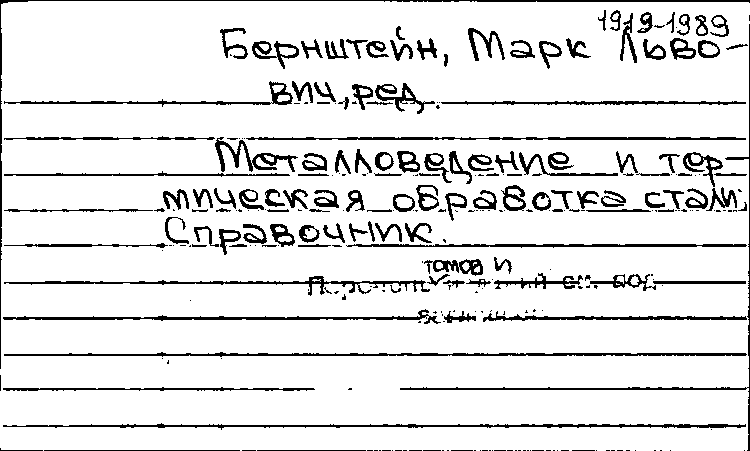 1919-1989
Бернштейн, Марк Льво-
вич, ред.
Металловедение и тер-
мическая обработка стали.
Справочник.
томов и
см. под